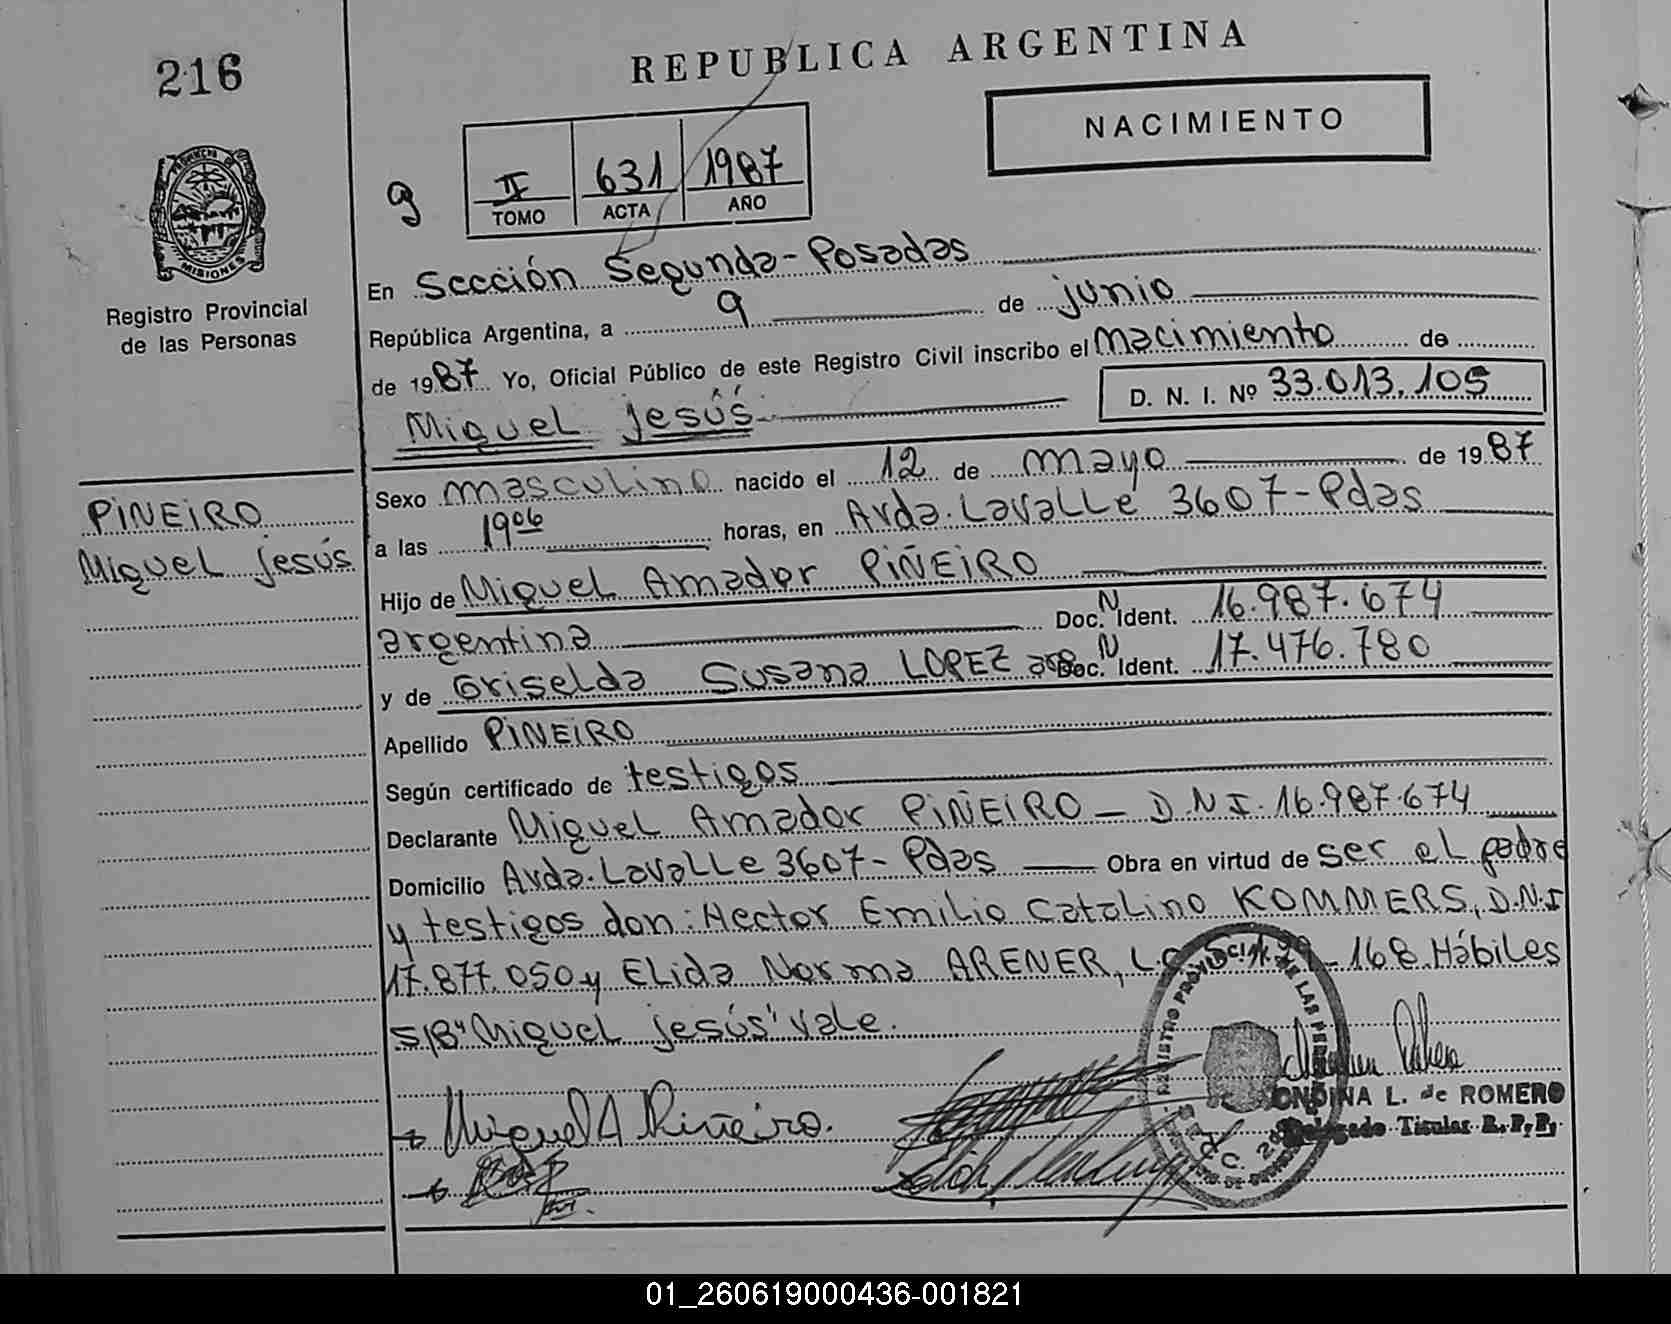 216
REPUBLICA ARGENTINA
NACIMIENTO
9
II 631 1987
TOMO ACTA AÑO
PROVINCIA DE
MISIONES
Registro Provincial
de las Personas
En Sección Segunda-Posadas
República Argentina, a 9 de junio
de 1987 Yo, Oficial Público de este Registro Civil inscribo el Nacimiento de
Miguel Jesús D. N. I. Nº 33.013.105
Sexo masculino nacido el 12 de mayo de 1987
PIÑEIRO
Miguel Jesús
a las 19⁰⁶ horas, en Avda. Lavalle 3607-Pdas
Hijo de Miguel Amador PIÑEIRO
argentina Doc. N Ident. 16.987.674
y de Griselda Susana LOPEZ arg Doc. N Ident. 17.476.780
Apellido PIÑEIRO
Según certificado de testigos
Declarante Miguel Amador PIÑEIRO - D.N.I. 16.987.674
Domicilio Avda. Lavalle 3607- Pdas Obra en virtud de ser el padre
y testigos don: Hector Emilio Catalino KOMMERS, D.N.I
17.877.050 y Elida Norma ARENER, L.C - 168 Hábiles
S/B "Miguel Jesús" Vale.
Miguel A Piñeiro.
ONDINA L. de ROMERO
Delegado Titular R. P. P.
01_260619000436-001821